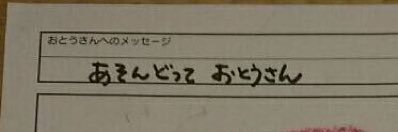 おとうさんへのメッセージ
あそんどって おとうさん